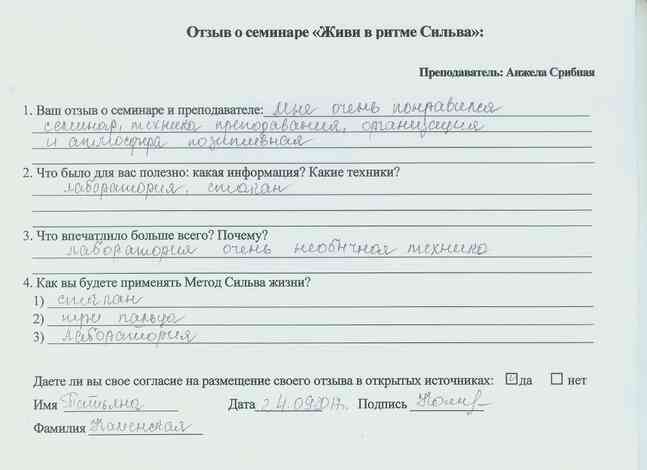 Отзыв о семинаре «Живи в ритме Сильва»:
Преподаватель: Анжела Срибная
1. Ваш отзыв о семинаре и преподавателе: Мне очень понравился
семинар, техника преподавания, организация
и атмосфера позитивная
2. Что было для вас полезно: какая информация? Какие техники?
лаборатория, стакан
3. Что впечатлило больше всего? Почему?
лаборатория очень необычная техника
4. Как вы будете применять Метод Сильва жизни?
1) стакан
2) три пальца
3) лаборатория
Даете ли вы свое согласие на размещение своего отзыва в открытых источниках: да нет
Имя Татьяна Дата 24.09.2017г. Подпись
Фамилия Каменская